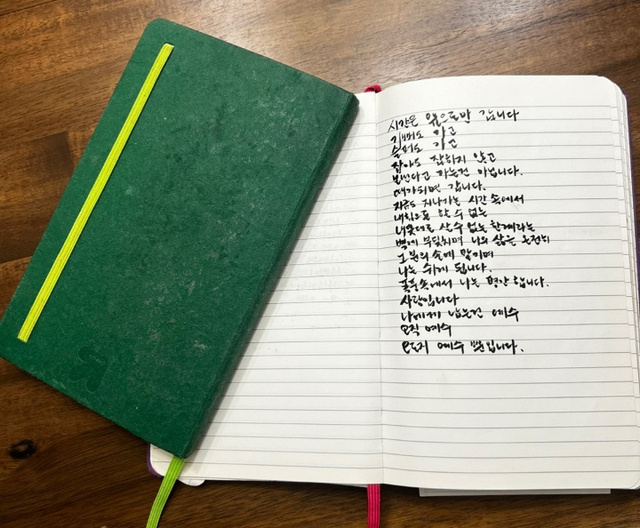 시간은 앞으로만 갑니다
기뻐도 가고
슬퍼도 가고
잡아도 잡히지 않고
보낸다고 가는건 아닙니다.
때가되면 갑니다.
지금도 지나가는 시간 속에서
내힘으로 할 수 없는
내뜻대로 살 수 없는 한계라는
벽에 부딪히며 나의 삶은 온전히
그분의 손에 맡기며
나는 쉬게 됩니다.
폭풍속에서 나는 평안 합니다.
사랑입니다
나에게 남는건 예수
오직 예수
오로지 예수 뿐입니다.